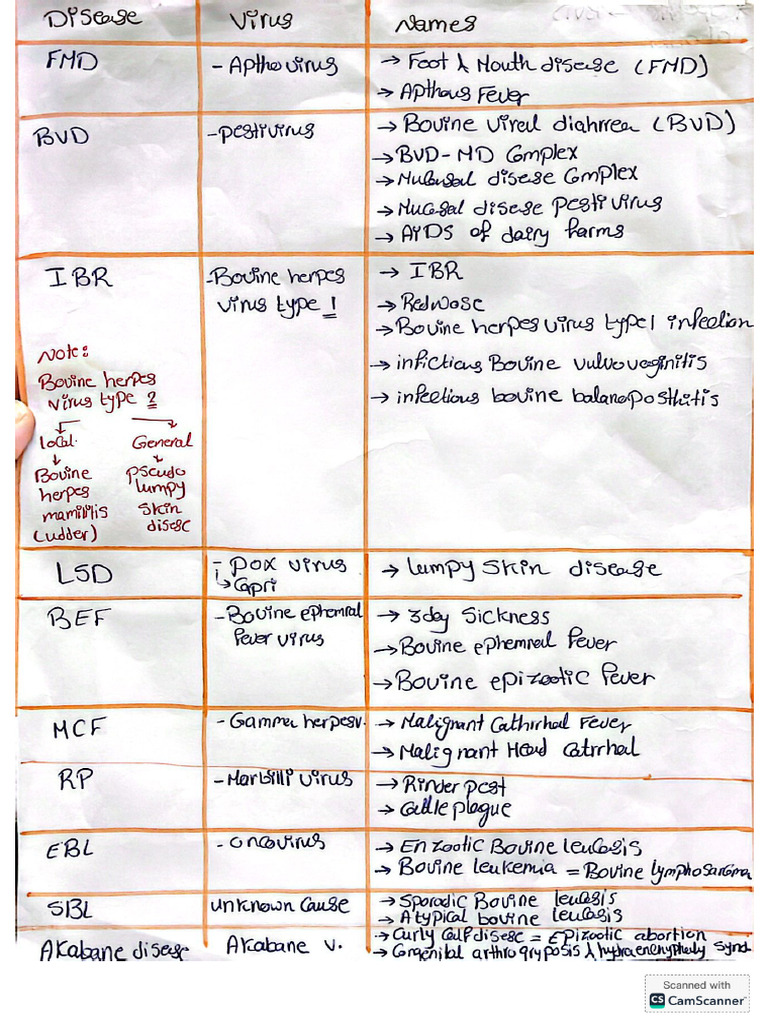 Disease Virus Names
FMD - Aptho virus → Foot & Mouth disease (FMD)
→ Apthous Fever
BVD - pestivirus → Bovine viral diahrrea (BVD)
→ BVD-MD Complex
→ Mucosal disese Complex
→ Mucosal disese pestivirus
→ AIDS of dairy farms
IBR - Bovine herpes virus type 1 → IBR
→ Rednose
→ Bovine herpes virus type 1 infection
→ infictious Bovine vulvovaginitis
→ infectious bovine balanoposthitis
Note:
Bovine herpes
virus type 2
Local General
Bovine pseudo
herpes lumpy
mamilitis skin
(udder) disese
LSD - pox virus → Lumpy skin disease
↳ Capri
BEF - Bovine ephmral → 3day sickness
fever virus → Bovine ephemral fever
→ Bovine epizootic fever
MCF - Gamma herpesv. → Malignant Cathirhal Fever
→ Malignant Head Catrrhal
RP - Morbilli virus → Rinder pest
→ Cattle plague
EBL - oncovirus → Enzootic Bovine leucosis
→ Bovine leukemia = Bovine lymphosarcoma
SBL unknown cause → Sporadic Bovine leucosis
→ Atypical bovine leucosis
Akabane disease Akabane v. → Curly Calf disese = epizootic abortion
→ Congenital arthrogryposis & synd
Scanned with
CS CamScanner